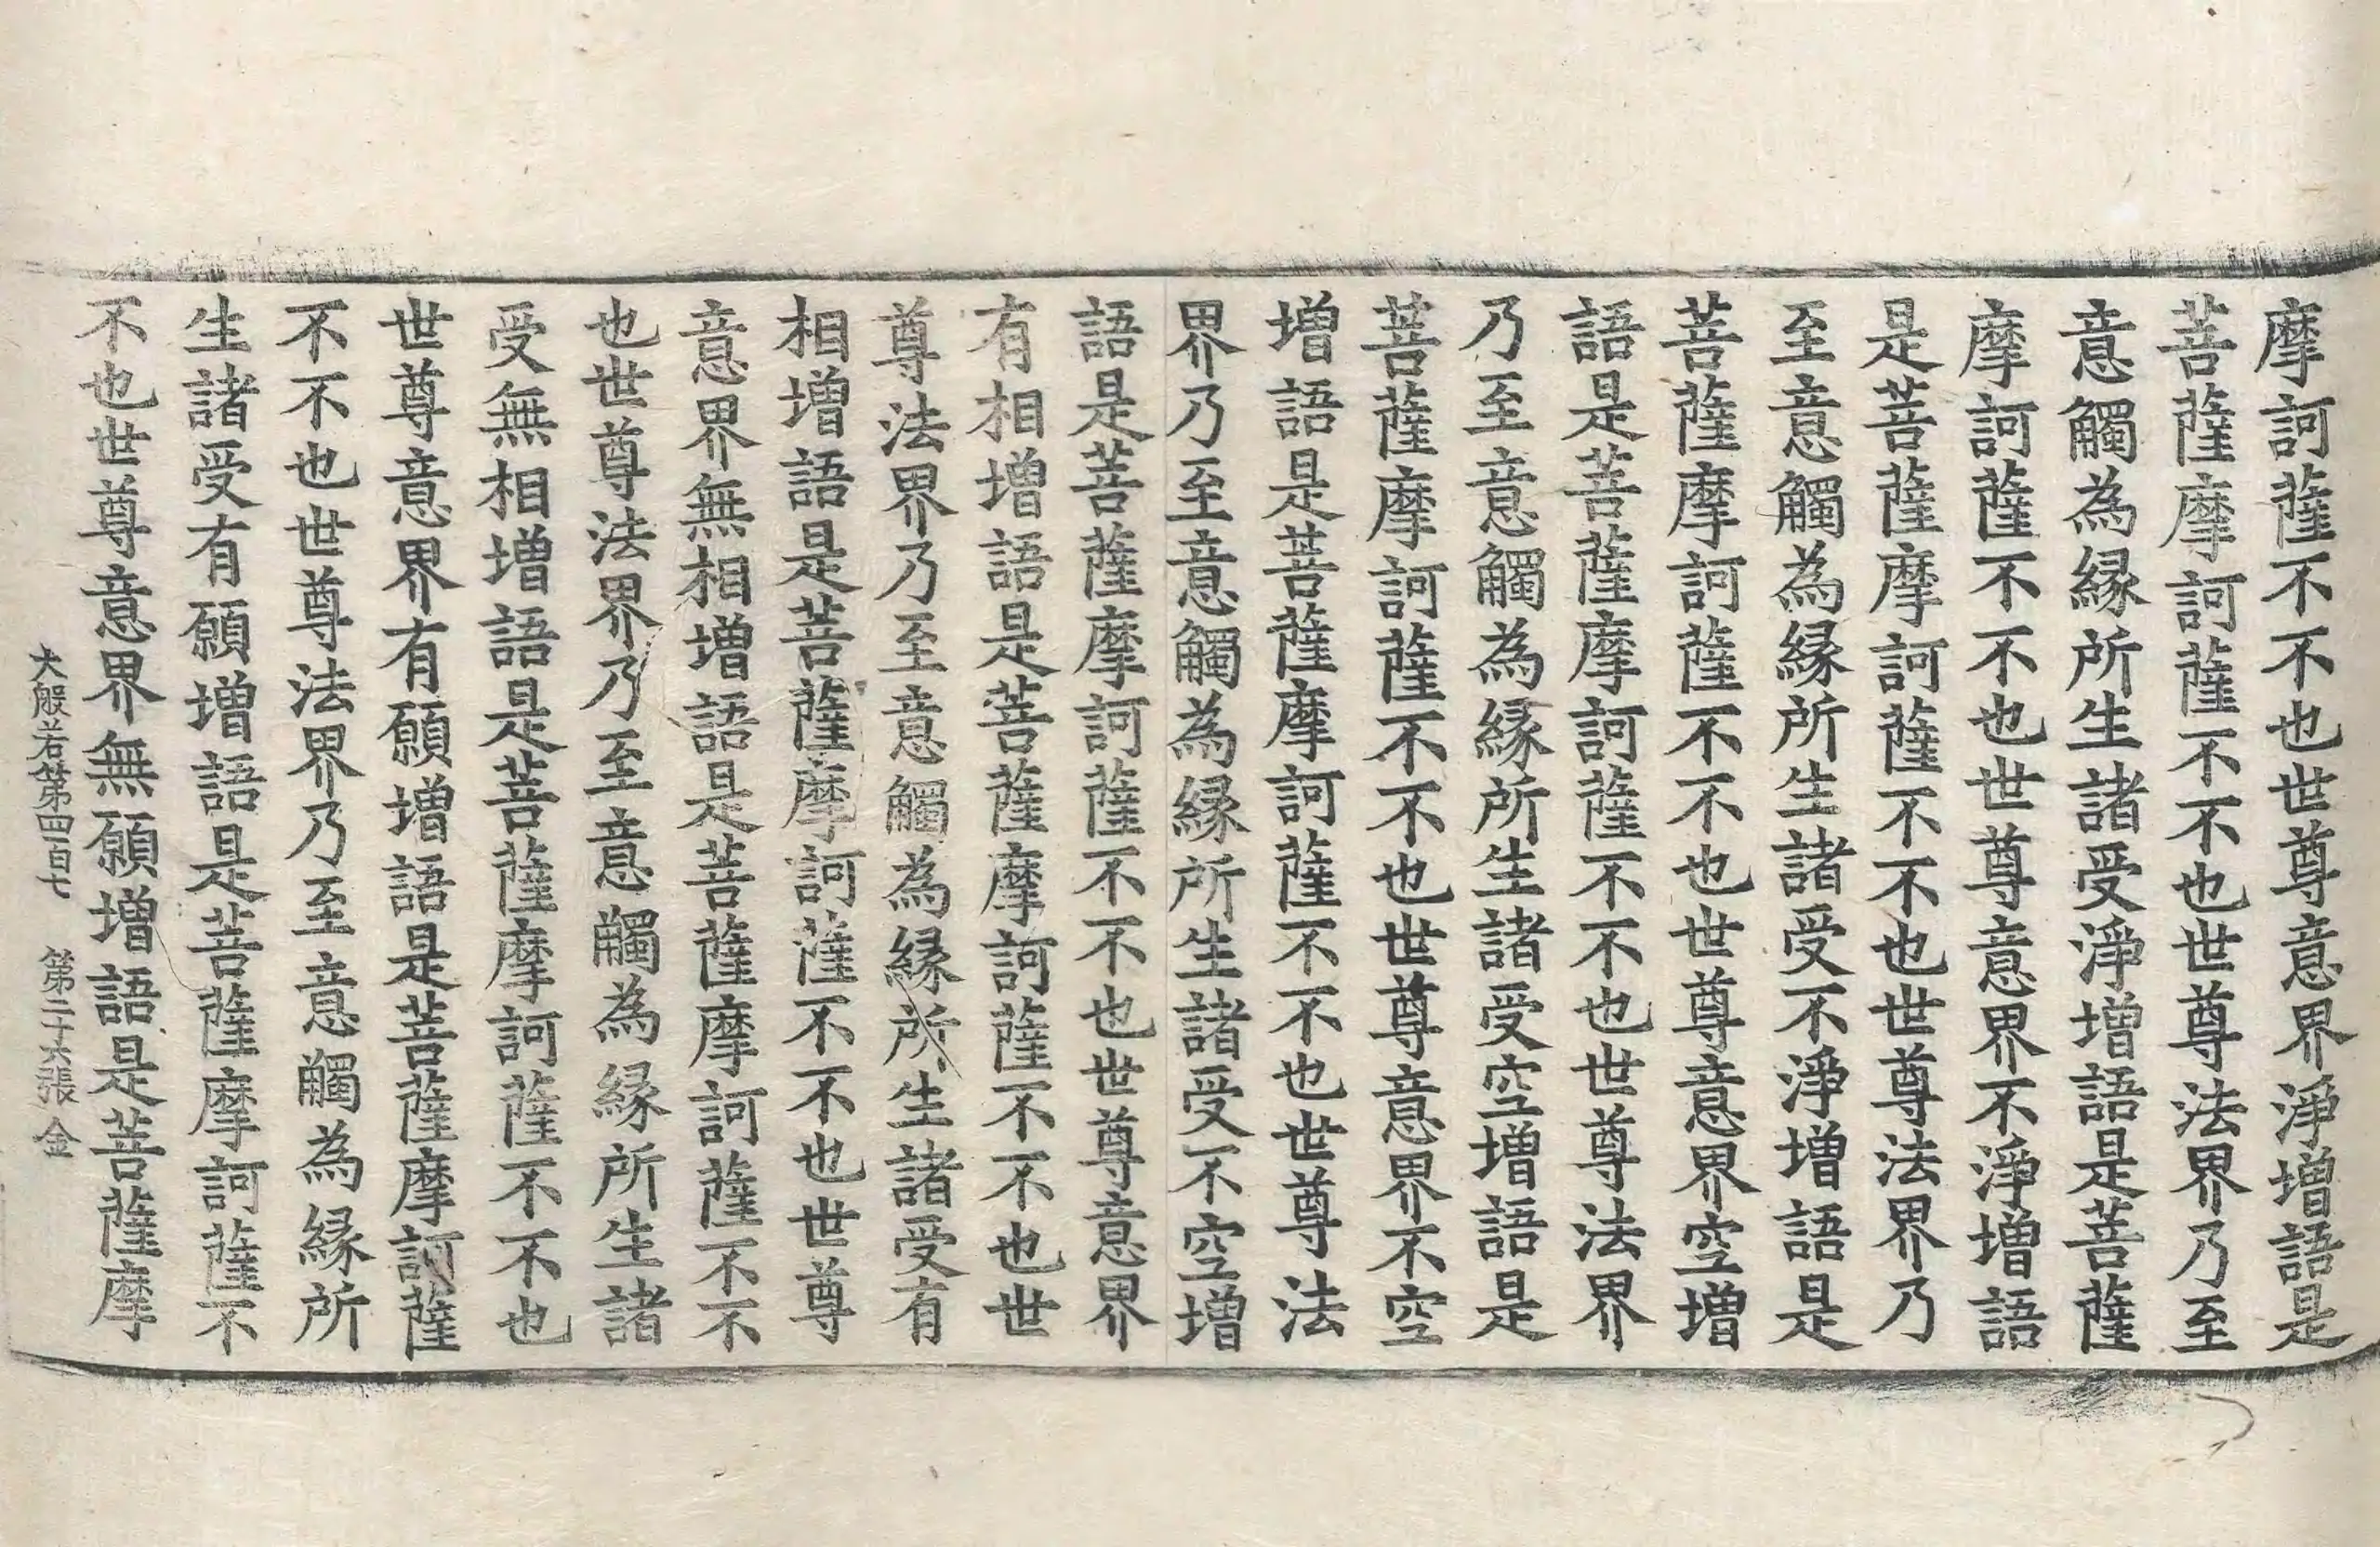 摩訶薩不不也世尊意界淨增語是
菩薩摩訶薩不不也世尊法界乃至
意觸為縁所生諸受淨增語是菩薩
摩訶薩不不也世尊意界不淨增語
是菩薩摩訶薩不不也世尊法界乃
至意觸為縁所生諸受不淨增語是
菩薩摩訶薩不不也世尊意界空增
語是菩薩摩訶薩不不也世尊法界
乃至意觸為縁所生諸受空增語是
菩薩摩訶薩不不也世尊意界不空
增語是菩薩摩訶薩不不也世尊法
界乃至意觸為縁所生諸受不空增
語是菩薩摩訶薩不不也世尊意界
有相增語是菩薩摩訶薩不不也世
尊法界乃至意觸為縁所生諸受有
相增語是菩薩摩訶薩不不也世尊
意界無相增語是菩薩摩訶薩不不
也世尊法界乃至意觸為縁所生諸
受無相增語是菩薩摩訶薩不不也
世尊意界有願增語是菩薩摩訶薩
不不也世尊法界乃至意觸為縁所
生諸受有願增語是菩薩摩訶薩不
不也世尊意界無願增語是菩薩摩
大般若第四百七 第二十六張 金